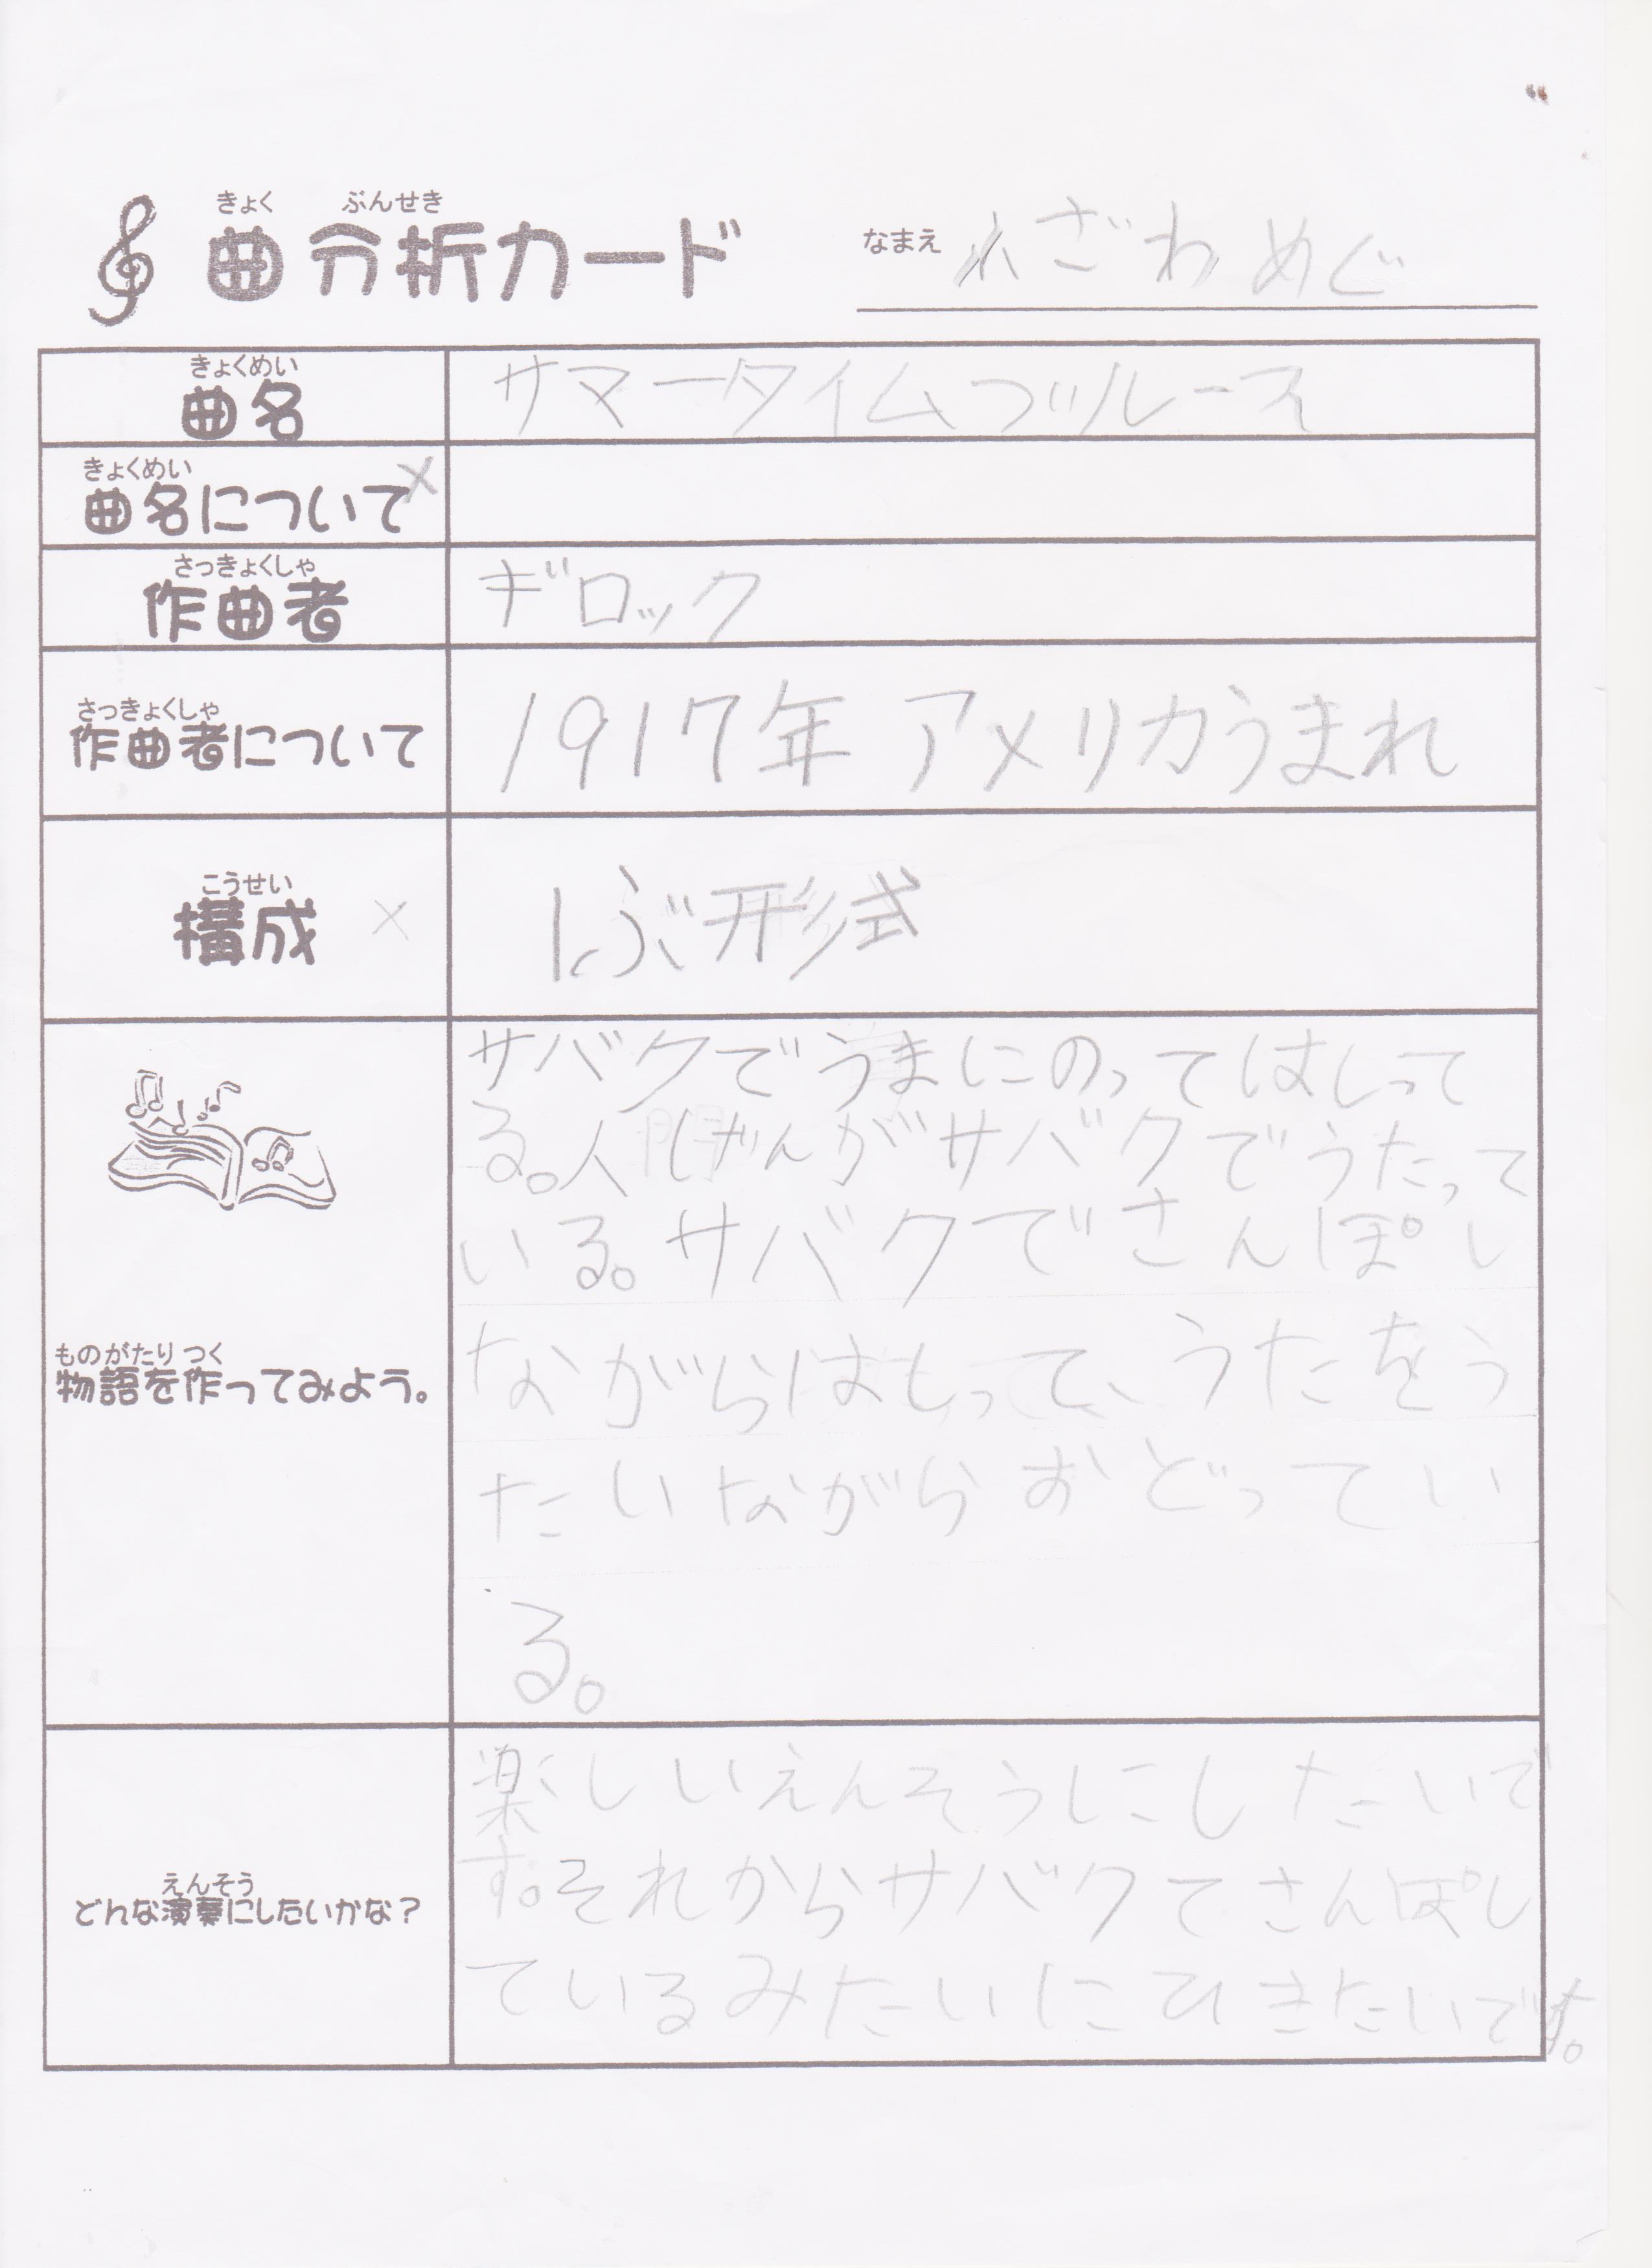 きょく ぶんせき
曲分析カード
なまえ ざわ めぐ
きょくめい
曲名
サマータイムブルース
きょくめい
曲名について ×
さっきょくしゃ
作曲者
ギロック
さっきょくしゃ
作曲者について
1917年 アメリカうまれ
こうせい
構成 ×
ぶ形式
ものがたり つく
物語を作ってみよう。
サバクでうまにのってはしって
る。人げんがサバクでうたって
いる。サバクでさんぽし
ながらはしって、うたをう
たいながらおどってい
る。
えんそう
どんな演奏にしたいかな？
楽しいえんそうにしたいで
す。それからサバクでさんぽし
ているみたいにひきたいです。